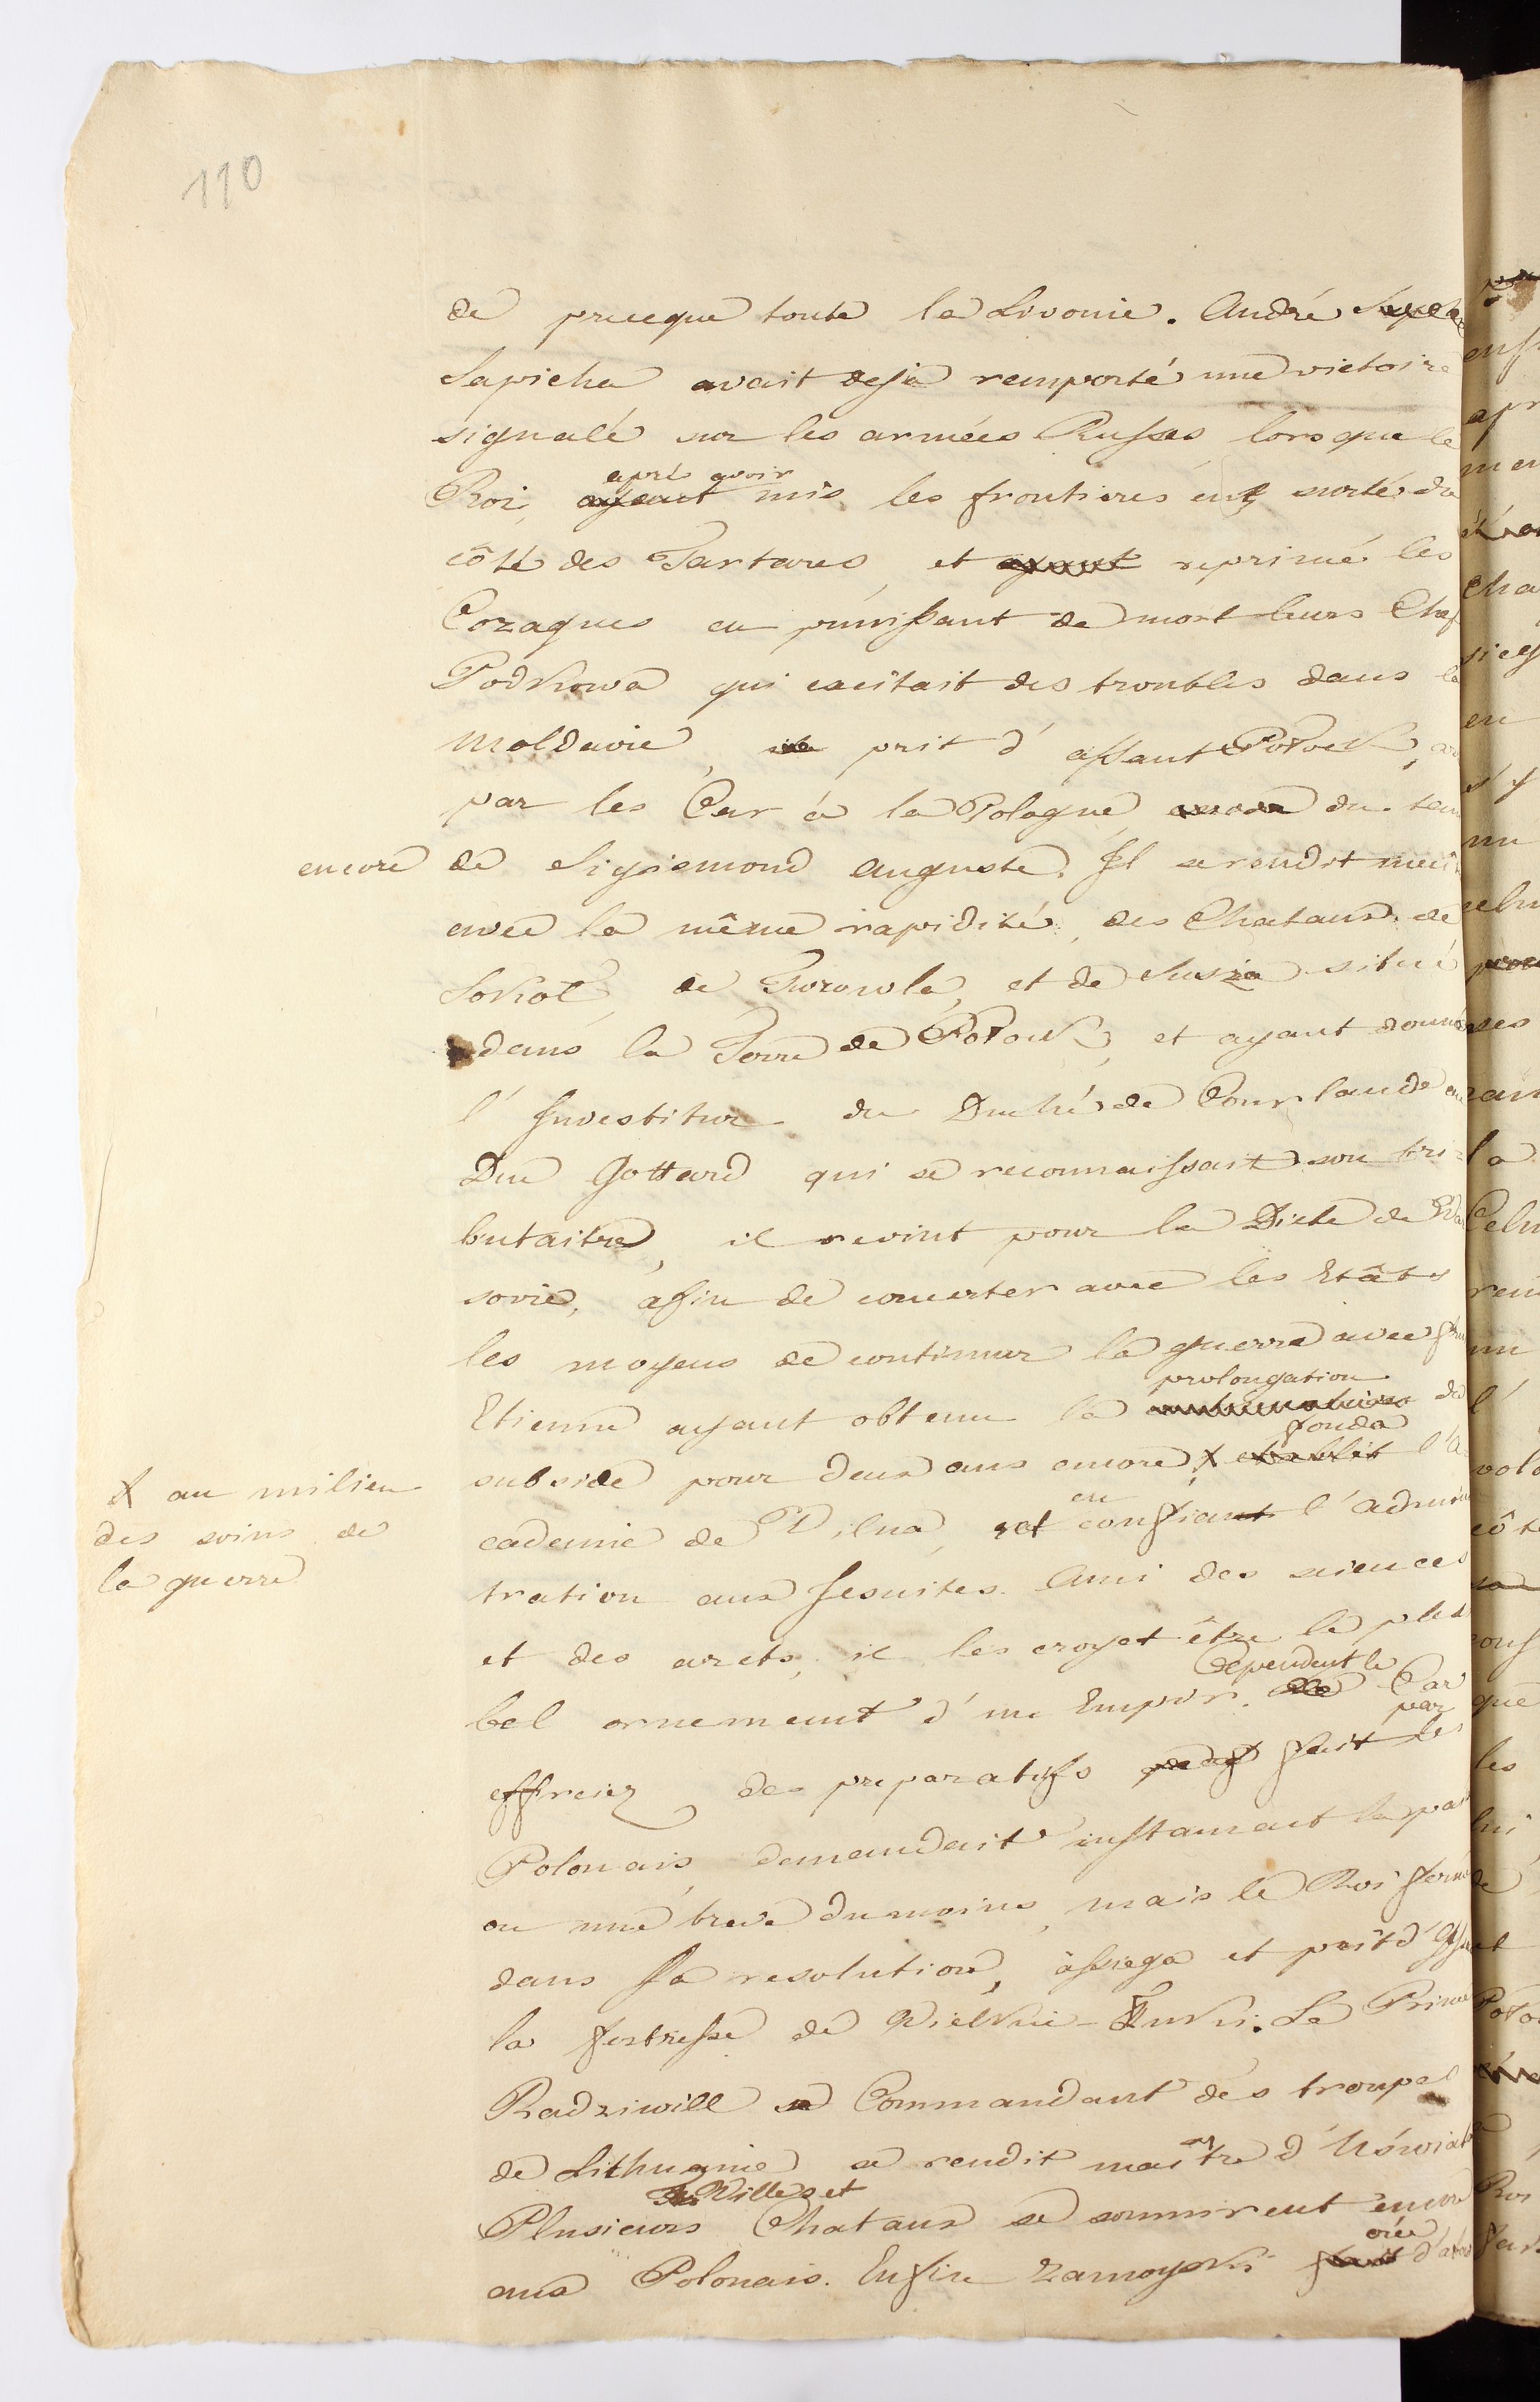 110
de preeque toute la Livonie. André
Sapieha avait deja remporté une victoire
signalé sur les armées Russes lorsque le
après avoir
Roi, ayant mis les frontieres en surté du
côté des Tartares, et ayant reprimé les
Cozaques en punissant de mort leurs Chef
Podkowa qui excitait des troubles dans la
Moldavie, prit d'assaut Potock,
par les Czar à la Pologne encore du
encore de Sigismond Auguste. Il se rendit
avec la même rapidité, des Chataux de
Sokoł, de Turowla, et de Susza situé
dans la Terre de Potock, et ayant donné
l'Investitur du Duché de Courlande au
Duc Gottard qui se reconnaissait son tri-
butaitre, il revint pour la Diete de
sovie, afin de concerter avec les Etâts
les moyens de continuer la guerre avec
prolongation
Etienne ayant obtenu la du
fonda
subside pour deux ans encore, X etablit l'a
X au milieu
des soins de
la guerre
en
cademie de Vilna, et confiant l'admini
tration aux Jesuites. Ami des sciences
et des arets, il les croyet être le plus
Cependent le
bel ornement d'un Empir. Czar
par
effreiez des preparatifs fait les
Polonais, demandait instament la paix
ou une treve dumoins, mais le Roi ferme
dans sa resolution, assiega et prit d'
la fortresse de Wielkie-Luki. Le Prince
Radziwill Commandant des troupes
de Lithuanie se rendit maitre d'
Villes et
Plusieurs Chataux se soumirent encore
créé
aux Polonais. Enfin Zamoyski